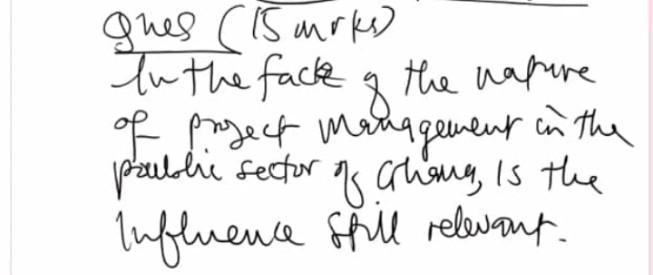 Ques (15 mrks)
In the face of the nature
of project management in the
public sector of Ghana, is the
Influence still relevant.